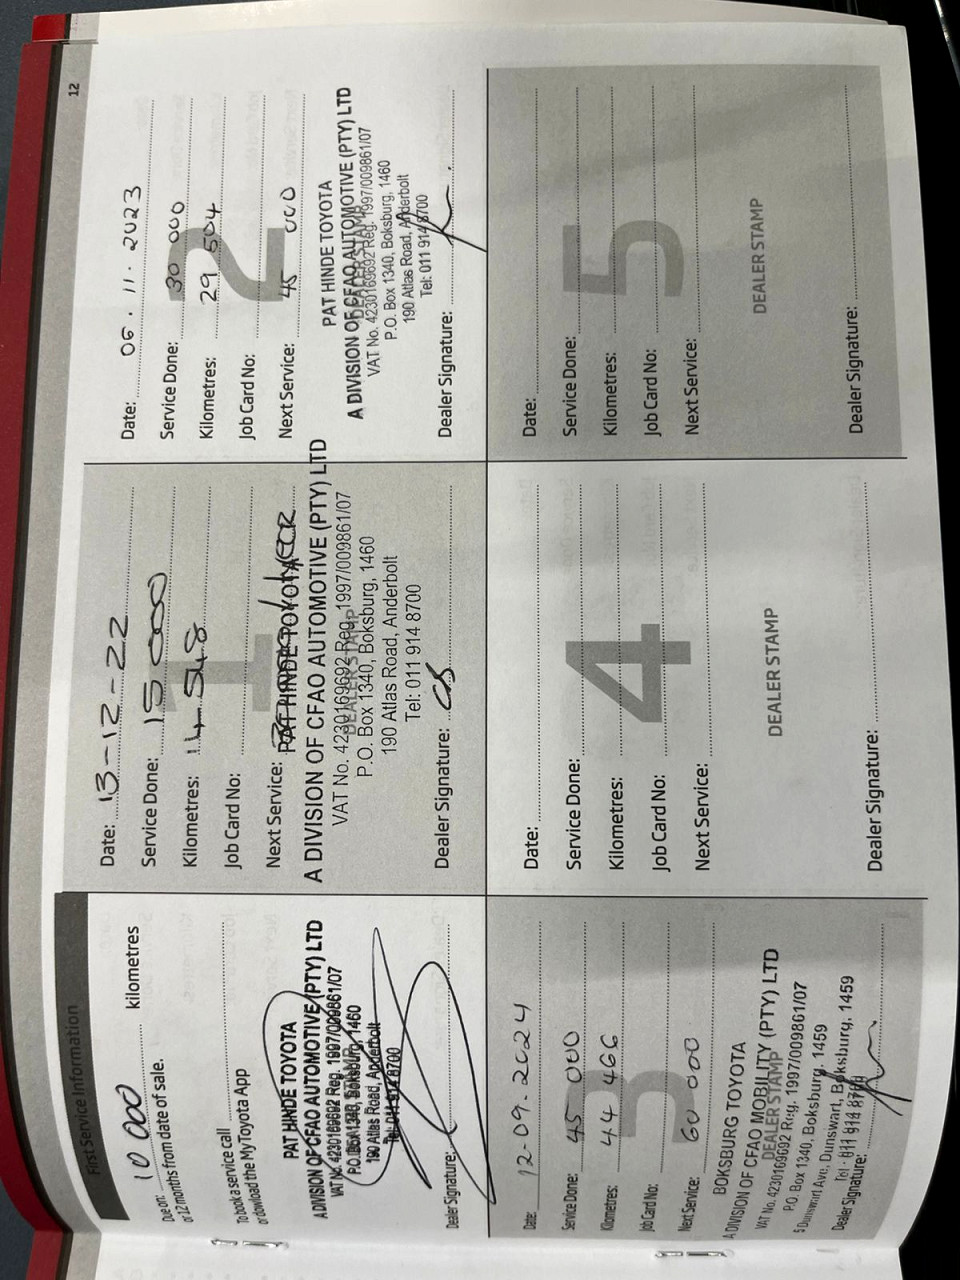 12
First Service Information
Due on: 10 000 kilometres
of 12 months from date of sale.
To book a service call
or dowload the MyToyota App
PAT HINDE TOYOTA
A DIVISION OF CFAO AUTOMOTIVE (PTY) LTD
VAT No. 4230169692 Reg. 1997/009861/07
P.O. Box 1340, Boksburg, 1460
190 Atlas Road, Anderbolt
Tel: 011 914 8700
Dealer Signature:
1
Date: 13-12-22
Service Done: 15 000
Kilometres: 14 548
Job Card No:
Next Service:
PAT HINDE TOYOTA
A DIVISION OF CFAO AUTOMOTIVE (PTY) LTD
VAT No. 4230169692 Reg. 1997/009861/07
DEALER STAMP
P.O. Box 1340, Boksburg, 1460
190 Atlas Road, Anderbolt
Tel: 011 914 8700
Dealer Signature:
2
Date: 06. 11. 2023
Service Done: 30 000
Kilometres: 29 504
Job Card No:
Next Service: 45 000
PAT HINDE TOYOTA
A DIVISION OF CFAO AUTOMOTIVE (PTY) LTD
DEALER STAMP
VAT No. 4230169692 Reg. 1997/009861/07
P.O. Box 1340, Boksburg, 1460
190 Atlas Road, Anderbolt
Tel: 011 914 8700
Dealer Signature:
3
Date: 12-09-2024
Service Done: 45 000
Kilometres: 44 466
Job Card No:
Next Service: 60 000
BOKSBURG TOYOTA
A DIVISION OF CFAO MOBILITY (PTY) LTD
DEALER STAMP
VAT No. 4230169692 Reg. 1997/009861/07
P.O. Box 1340, Boksburg, 1459
5 Dunswart Ave, Dunswart, Boksburg, 1459
Tel: 011 914 8700
Dealer Signature:
4
Date:
Service Done:
Kilometres:
Job Card No:
Next Service:
DEALER STAMP
Dealer Signature:
5
Date:
Service Done:
Kilometres:
Job Card No:
Next Service:
DEALER STAMP
Dealer Signature: